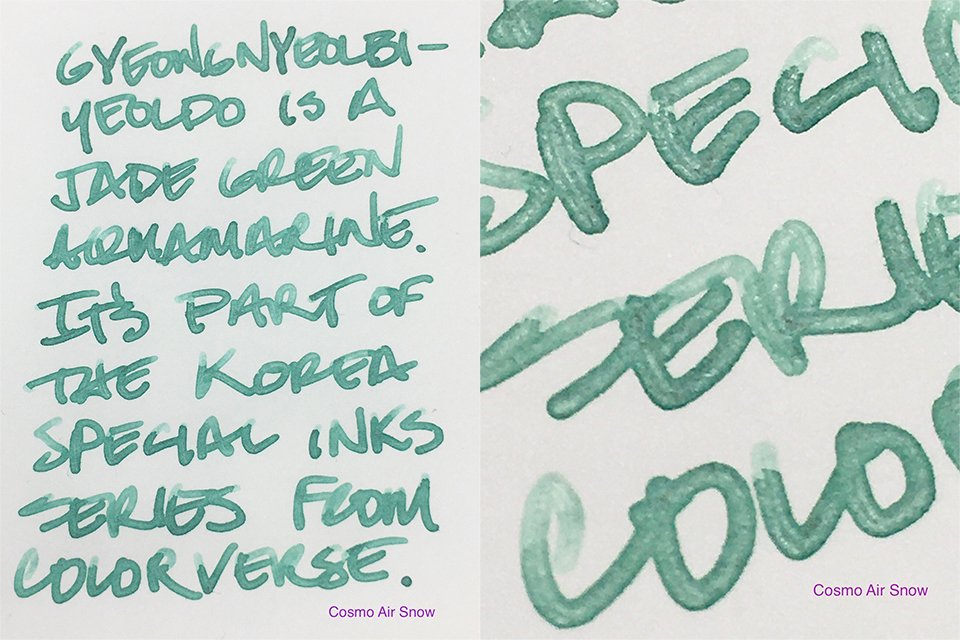 GYEONGNYEOLBI-
YEOLDO IS A
JADE GREEN
AQUAMARINE.
IT'S PART OF
THE KOREA
SPECIAL INKS
SERIES FROM
COLORVERSE.
Cosmo Air Snow
SPECI
SERIE
COLO
Cosmo Air Snow